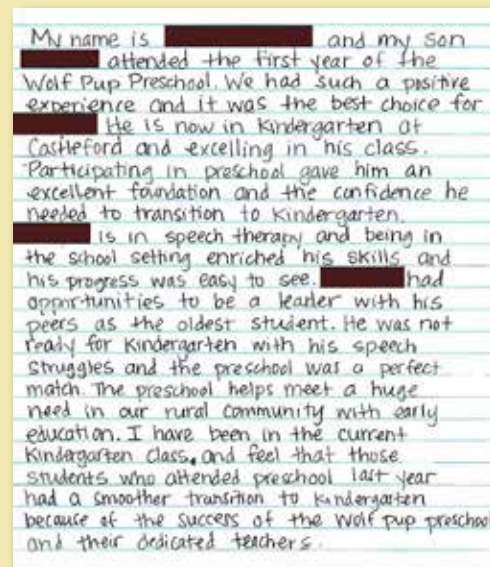 My name is and my son
attended the first year of the
Wolf Pup Preschool. We had such a positive
experience and it was the best choice for
He is now in Kindergarten at
Castleford and excelling in his class.
Participating in preschool gave him an
excellent foundation and the confidence he
needed to transition to Kindergarten.
is in speech therapy and being in
the school setting enriched his skills and
his progress was easy to see. had
opportunities to be a leader with his
peers as the oldest student. He was not
ready for Kindergarten with his speech
struggles and the preschool was a perfect
match. The preschool helps meet a huge
need in our rural community with early
education. I have been in the current
Kindergarten class, and feel that those
students who attended preschool last year
had a smoother transition to Kindergarten
because of the success of the Wolf pup preschool
and their dedicated teachers.